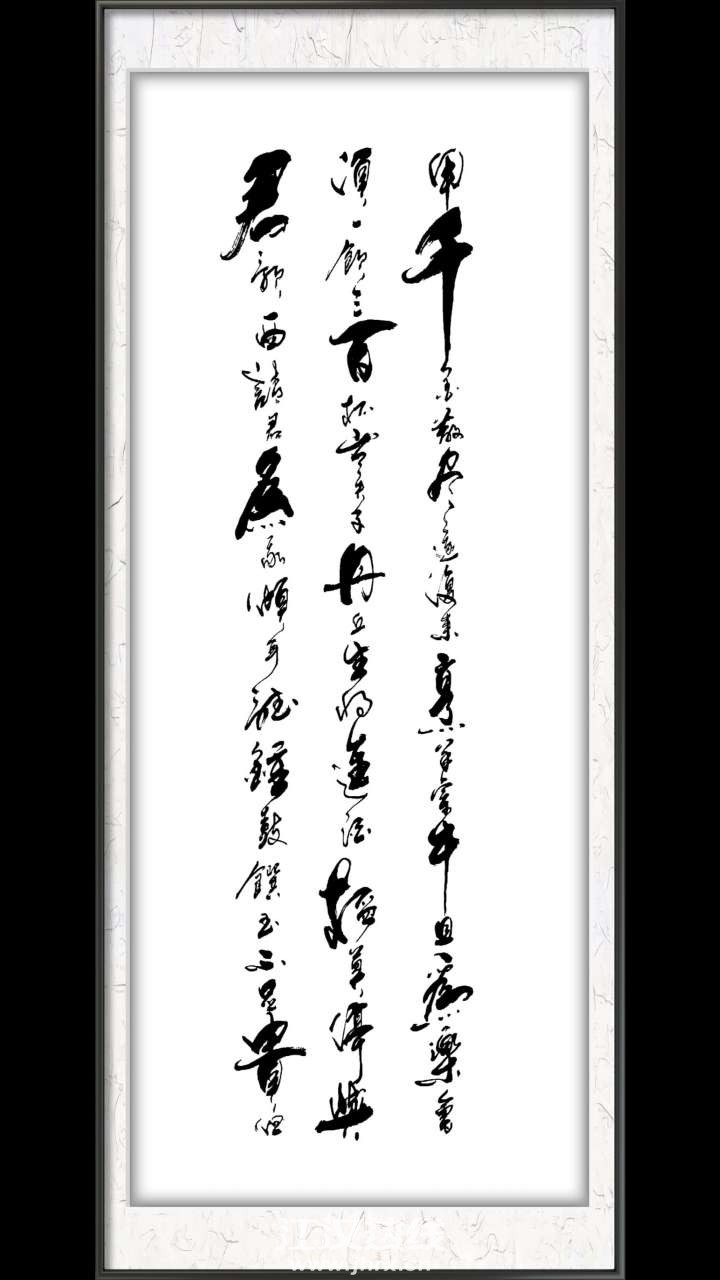 用千金散盡還復來烹羊宰牛且為樂會
須一飲三百杯岑夫子丹丘生將進酒杯莫停與
君歌一曲請君為我傾耳聽鐘鼓饌玉不足貴但